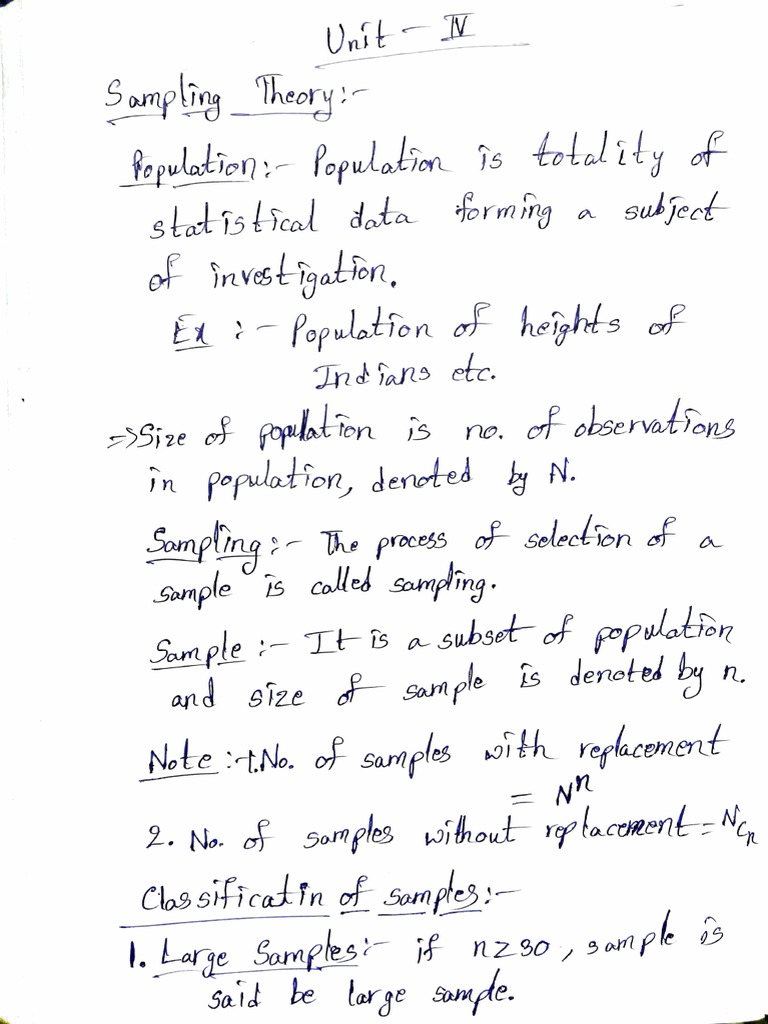 Unit - IV
Sampling Theory:-
Population:- Population is totality of
statistical data forming a subject
of investigation.
Ex :- Population of heights of
Indians etc.
=> Size of population is no. of observations
in population, denoted by N.
Sampling:- The process of selection of a
sample is called sampling.
Sample :- It is a subset of population
and size of sample is denoted by n.
Note :- 1. No. of samples with replacement
= Nⁿ
2. No. of samples without replacement = NCn
Classificatin of samples:-
1. Large Samples:- if n≥30, sample is
said be large sample.